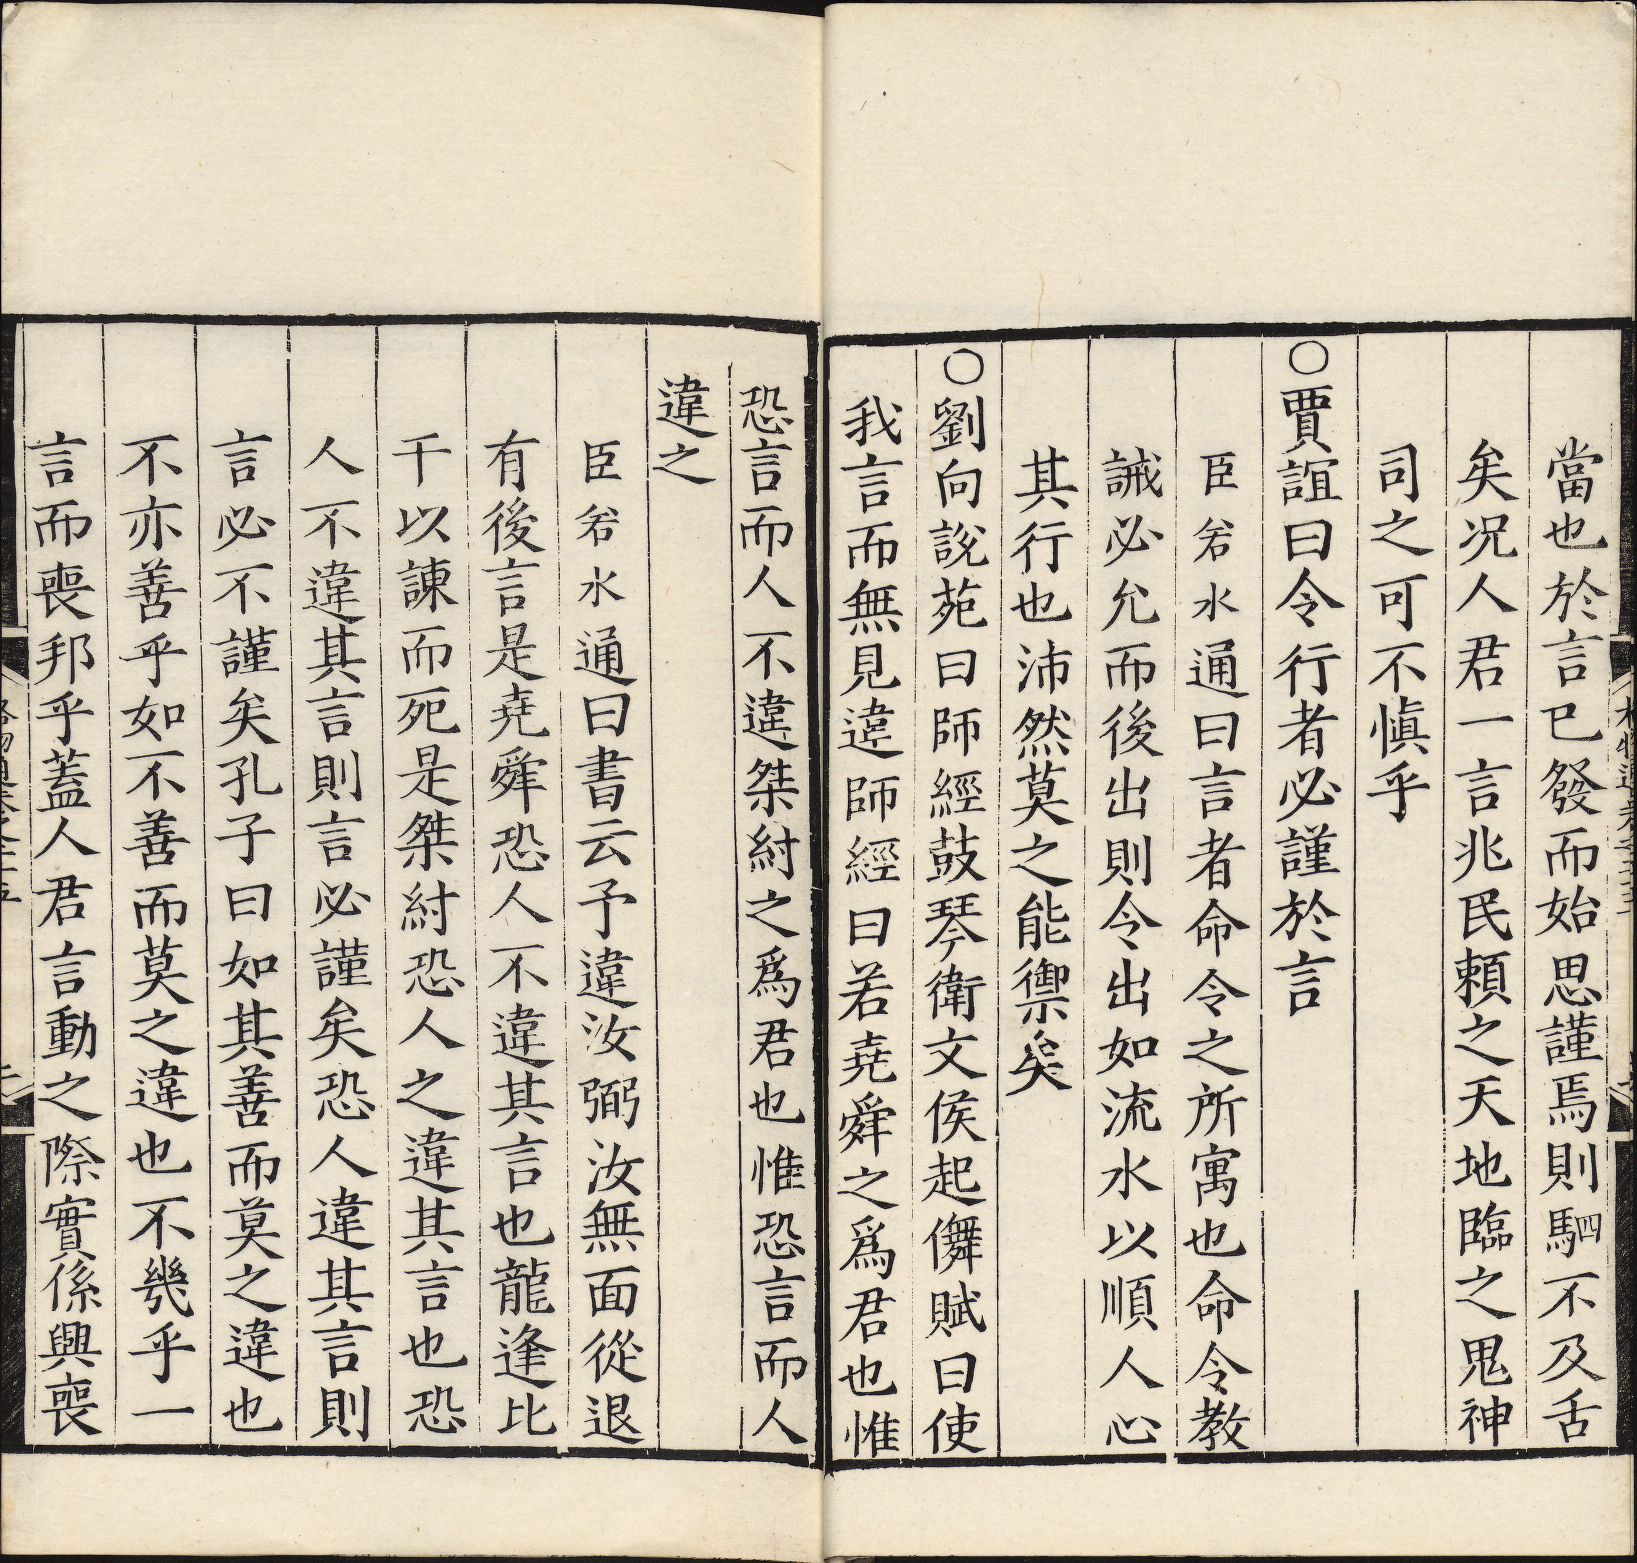 當也於言已發而始思謹焉則駟不及舌
矣况人君一言兆民賴之天地臨之鬼神
司之可不慎乎
○賈誼曰令行者必謹於言
臣若水通曰言者命令之所寓也命令教
誡必允而後出則令出如流水以順人心
其行也沛然莫之能禦矣
○劉向說苑曰師經鼓琴衛文侯起儛賦曰使
我言而無見違師經曰若堯舜之爲君也惟
恐言而人不違桀紂之爲君也惟恐言而人
違之
臣若水通曰書云予違汝弼汝無面從退
有後言是堯舜恐人不違其言也龍逢比
干以諫而死是桀紂恐人之違其言也恐
人不違其言則言必謹矣恐人違其言則
言必不謹矣孔子曰如其善而莫之違也
不亦善乎如不善而莫之違也不幾乎一
言而喪邦乎蓋人君言動之際實係興喪